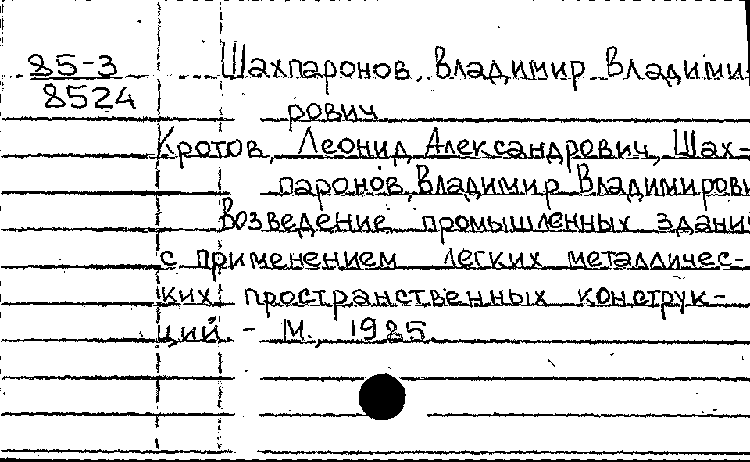 85-3 Шахпаронов, Владимир Владими-
8524
рович
Кротов, Леонид Александрович, Шах-
паронов, Владимир Владимирович
Возведение промышленных зданий
с применением легких металличес-
ких пространственных конструк-
ций - М., 1985